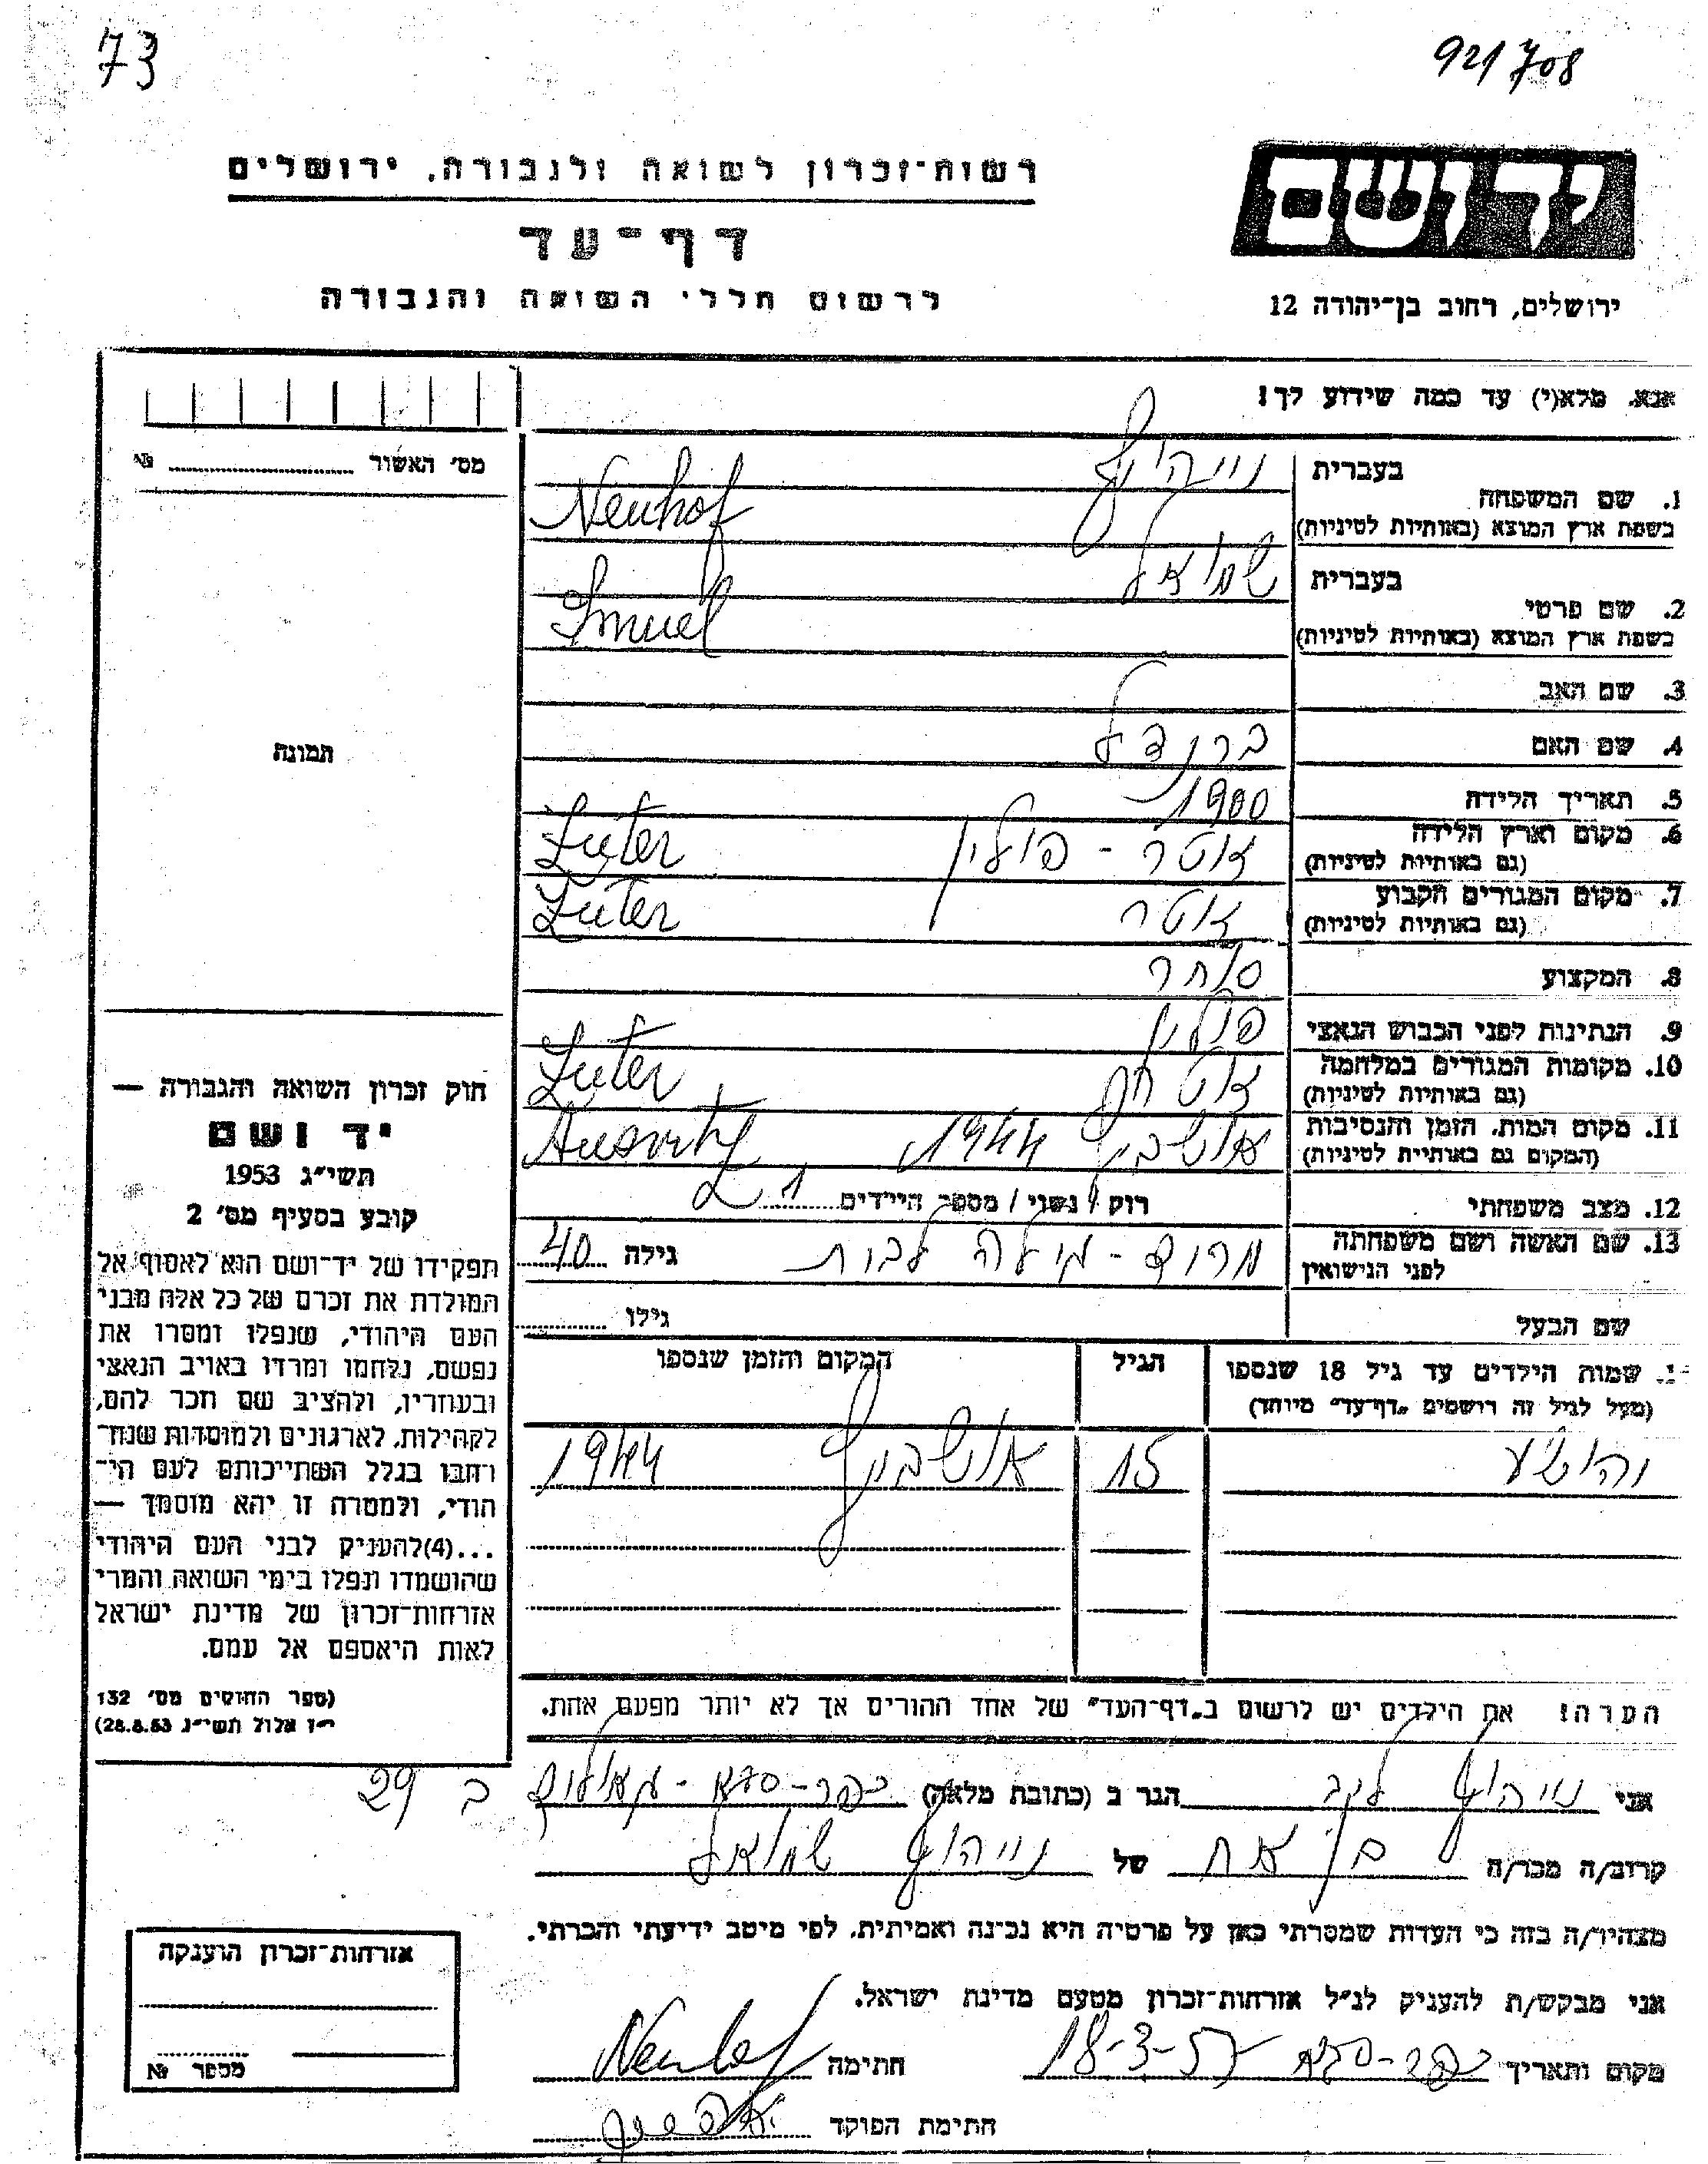 73
921708
רשות-זכרון לשואה ולגבורה, ירושלים
דף-עד
לרשום חללי השואה והגבורה
יד ושם
ירושלים, רחוב בן-יהודה 12
אנא, מלא(י) עד כמה שידוע לך!
מס' האשור № 
תמונה
חוק זכרון השואה והגבורה —
יד ושם
תשי"ג 1953
קובע בסעיף מס' 2
תפקידו של יד-ושם הוא לאסוף אל
המולדת את זכרם של כל אלה מבני
העם היהודי, שנפלו ומסרו את
נפשם, נלחמו ומרדו באויב הנאצי
ובעוזריו, ולהציב שם וזכר להם,
לקהילות, לארגונים ולמוסדות שנח-
רחבו בגלל השתייכותם לעם הי-
הודי, ולמטרה זו יהא מוסמך —
...(4)להעניק לבני העם היהודי
שהושמדו ונפלו בימי השואה והמרי
אזרחות-זכרון של מדינת ישראל
לאות היאספם אל עמם.
(ספר החוקים מס' 132
י"ז אלול תשי"ג 28.8.53)
בעברית נייהוף
1. שם המשפחה
בשפת ארץ המוצא (באותיות לטיניות) Neuhof
בעברית שמואל
2. שם פרטי
בשפת ארץ המוצא (באותיות לטיניות) Smuel
3. שם האב
4. שם האם ברנדל
5. תאריך הלידה 1900
6. מקום וארץ הלידה זוטר - פולין Zuter
(גם באותיות לטיניות)
7. מקום המגורים הקבוע זוטר Zuter
(גם באותיות לטיניות)
8. המקצוע סוחר
9. הנתינות לפני הכבוש הנאצי פולין
10. מקומות המגורים במלחמה Zuter
(גם באותיות לטיניות)
11. מקום המות, הזמן והנסיבות אושביץ 1944 Ausvitz
(המקום גם באותיות לטיניות)
12. מצב משפחתי רוק / נשוי / מספר הילדים 1
13. שם האשה ושם משפחתה לבית גילה 40
לפני הנישואין
שם הבעל גילו
שמות הילדים עד גיל 18 שנספו הגיל המקום והזמן שנספו
(מעל לגיל זה רושמים "דף-עד" מיוחד)
יהושע 15 אושביץ 1944
הערה! את הילדים יש לרשום ב"דף-העד" של אחד ההורים אך לא יותר מפעם אחת.
אני נייהוף הגר ב (כתובת מלאה) כפר-סבא - ב 29
קרוב/ה מכר/ה בן אח של נייהוף שמואל
מצהיר/ה בזה כי העדות שמסרתי כאן על פרטיה היא נכונה ואמיתית, לפי מיטב ידיעתי והכרתי.
אני מבקש/ת להעניק לנ"ל אזרחות-זכרון מטעם מדינת ישראל.
מקום ותאריך כפר-סבא 18-3-57 חתימה Neuhof
חתימת הפוקד
אזרחות-זכרון הוענקה
מספר №